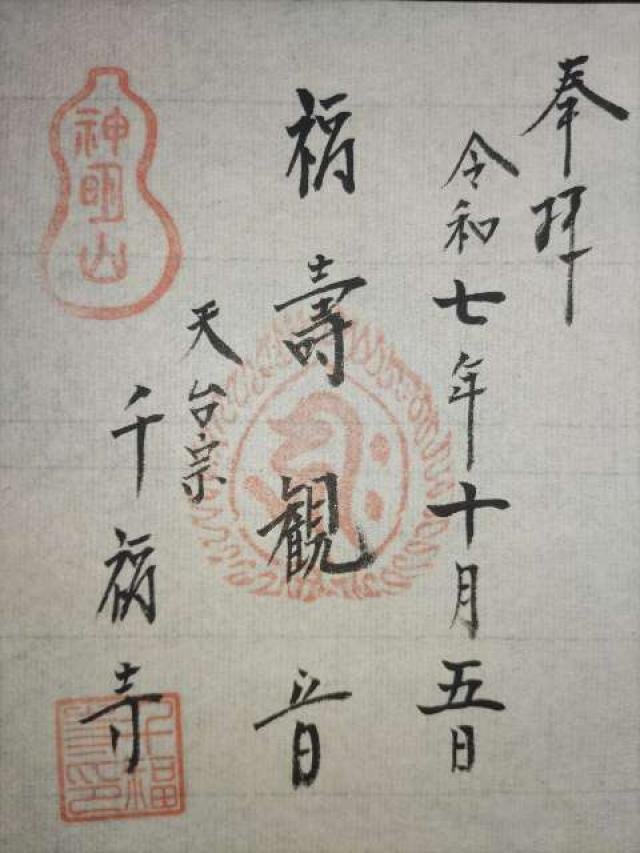 奉拝
令和七年十月五日
福壽観音
天台宗
千福寺
神明山
千福
寺印